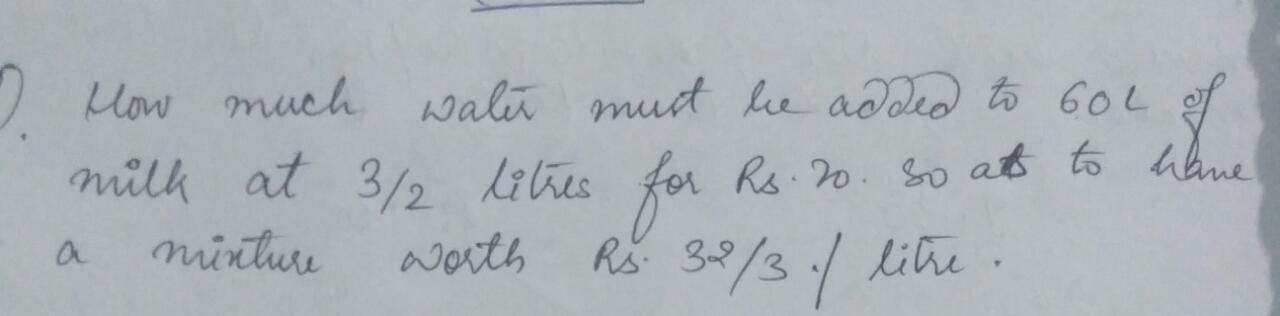 Q. How much water must be added to 60L of
milk at 3/2 litres for Rs. 20. so as to have
a mixture worth Rs. 32/3 ./ litre.